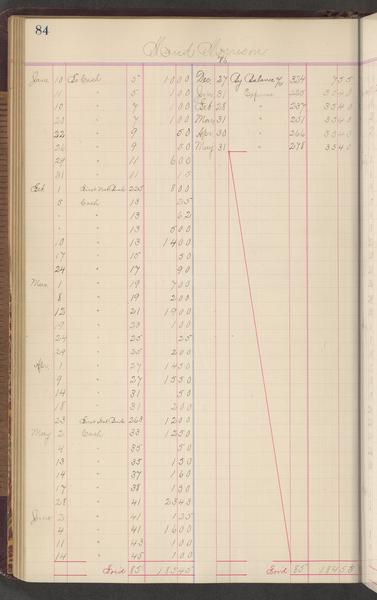 84
June 10 To Cash 5 10 00 Dec 27 By Balance 324 7 55
11 " 5 1 00 31 Expense 225 35 40
10 " 7 1 00 Feb 28 " 237 35 40
20 " 7 1 00 Mar 31 " 251 35 40
22 " 9 50 Apr 30 " 266 35 40
26 " 9 50 May 31 " 278 35 40
29 " 11 6 00
31 " 11 15
Feb 1 First Nat Bank 225 8 00
5 Cash 13 25
" " 13 62
" " 13 5 00
10 " 13 14 00
17 " 15 50
24 " 17 90
Mar 1 " 19 7 00
8 " 19 2 00
13 " 21 19 00
19 " 23 1 00
24 " 25 25
29 " 25 2 00
Apr 1 " 27 14 50
9 " 27 15 50
14 " 31 50
18 " 31 2 00
23 First Nat Bank 263 12 00
May 2 Cash 33 12 50
4 " 35 50
13 " 35 1 50
14 " 37 1 60
17 " 38 1 30
28 " 41 23 43
June 2 " 41 1 35
4 " 41 16 00
11 " 43 1 00
14 " 45 1 00
Ford 85 185 45 Ford 85 184 55